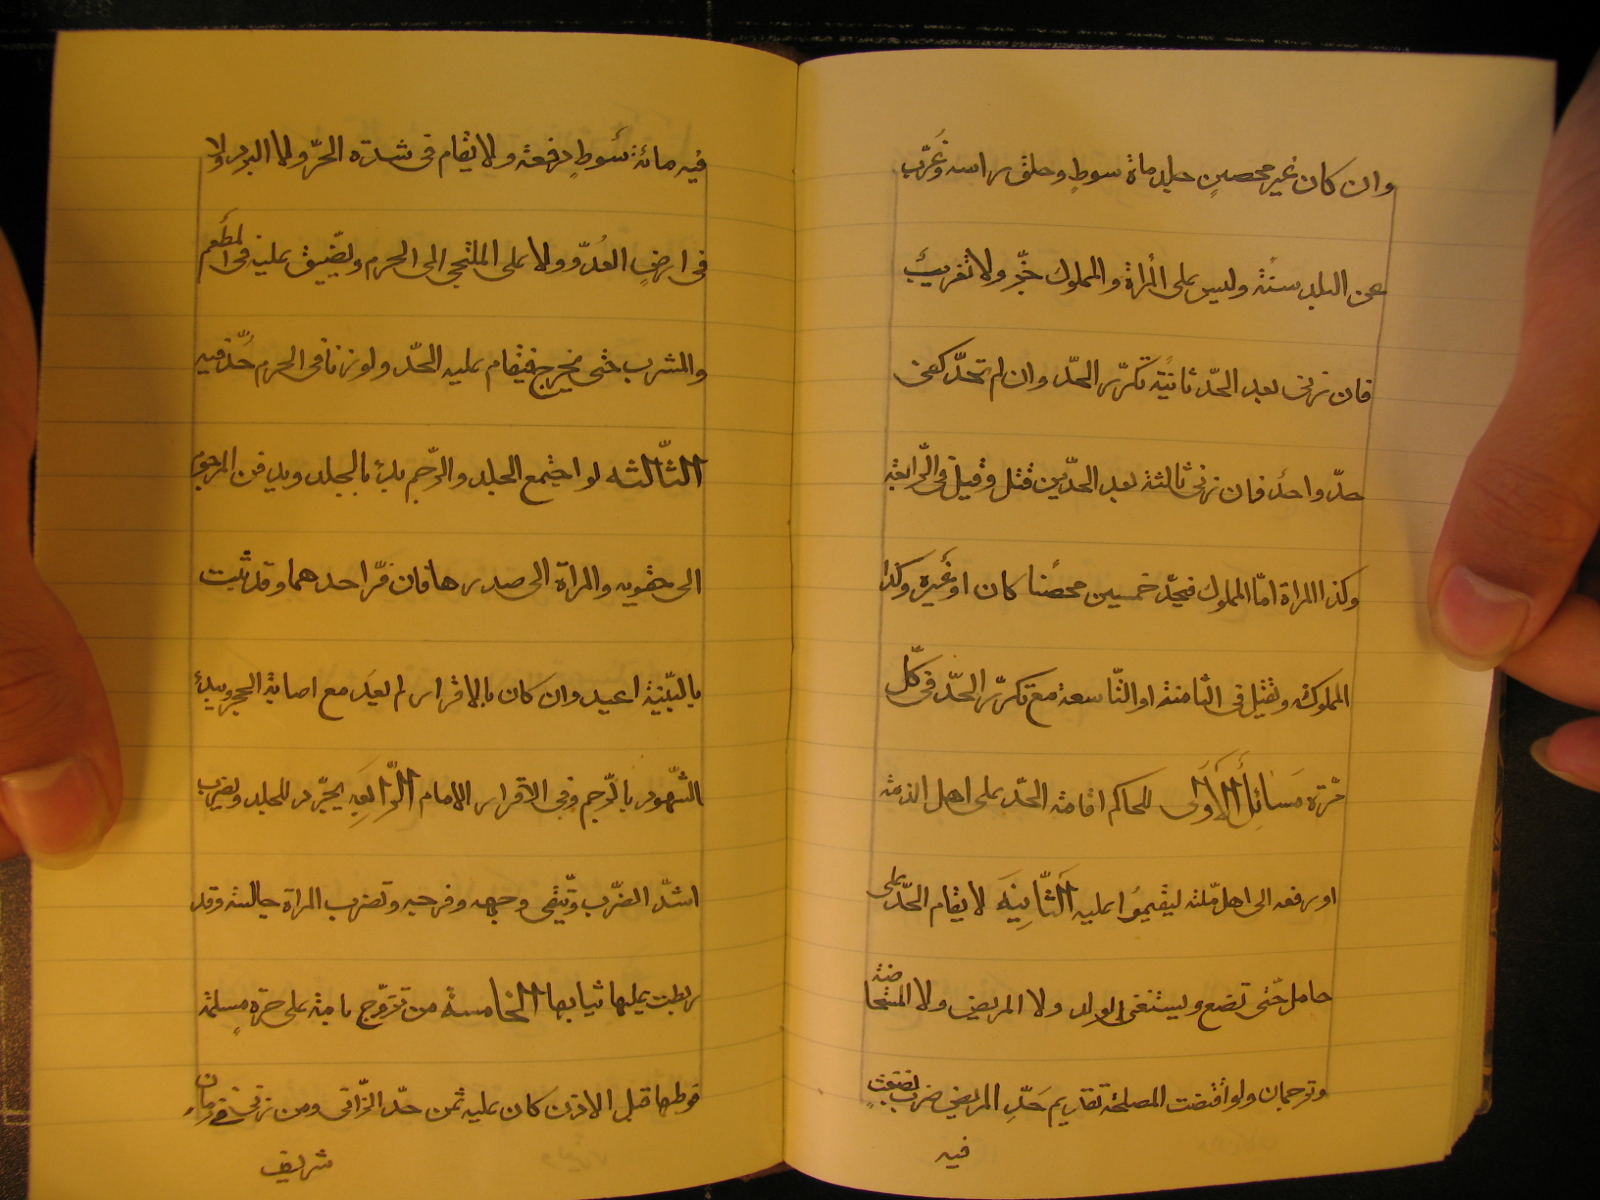 وان كان غير محصنٍ جلد ماة سوطٍ وحلق راسه وغرّب
عن البلد سنة وليس على المرأة والمملوك جزّ ولا تغريب
فان زنى بعد الحدّ ثانية تكرّر الحدّ وان لم تحدّ كفى
حدّ واحد فان زنى ثالثة بعد الحدّين قتل وقيل فى الرّابعة
وكذا المراة امّا المملوك فيحدّ خمسين محصنا كان او غيره وكذا
المملوكة وتقتل فى الثامنة او التّاسعة مع تكرّر الحدّ فى كلّ
مرّة مسائل الأولى للحاكم اقامة الحدّ على اهل الذمة
او رفعه الى اهل ملّته ليقيموا عليه الثّانية لا يقام الحدّ على
حامل حتّى تضع ويستغنى الولد ولا المريض ولا المستحاضة
وترجمان ولو اقتضت المصلحة تقديم حدّ المريض ضرب بضغث
فيه
فيه مائة سوطٍ دفعة ولا يقام فى شدّة الحرّ ولا البرد ولا
فى ارض العدّو ولا على الملتجى الى الحرم ويضّيق عليه فى المطعم
والمشرب حتى يخرج فيقام عليه الحدّ ولو زنا فى الحرم حدّ فيه
الثّالثه لو اجتمع الجلد والرّجم بدئ بالجلد ويدفن المرجوم
الى حقويه والمراة الى صدرها فان فرّ احدهما وقد ثبت
بالبّينة اعيد وان كان بالاقرار لم يعد مع اصابة الحجر ويبدئ
الشّهود بالرّجم وفى الاقرار الامام الرّابعة يجرّد للجلد ويضرب
اشدّ الضّرب ويتّقى وجهه وفرجه وتضرب المراة جالسة وقد
ربطت عليها ثيابها الخامسة من تزوّج بامة على حرّة مسلمة
فوطئها قبل الاذن كان عليه ثمن حدّ الزّانى ومن زنى فى زمان
شريف